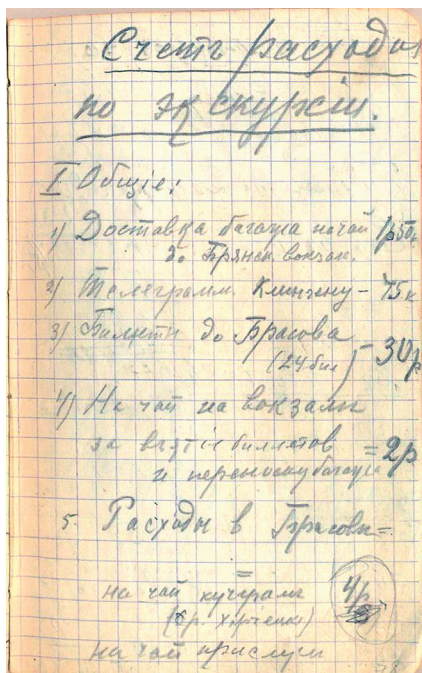 Счетъ расходов
по экскурсіи.
I Общіе:
1) Доставка багажа на чай 1р50к
до Брянск. вокзал.
2) Телеграмм. Клингену - 75к
3) Билеты до Брасова
(24 бил) - 30р
4) На чай на вокзалы
за взятіе билетов = 2р
и переноску багажа
5. Расходы в Брасовы =
на чай кучерам 4р
(гр.
на чай прислуги